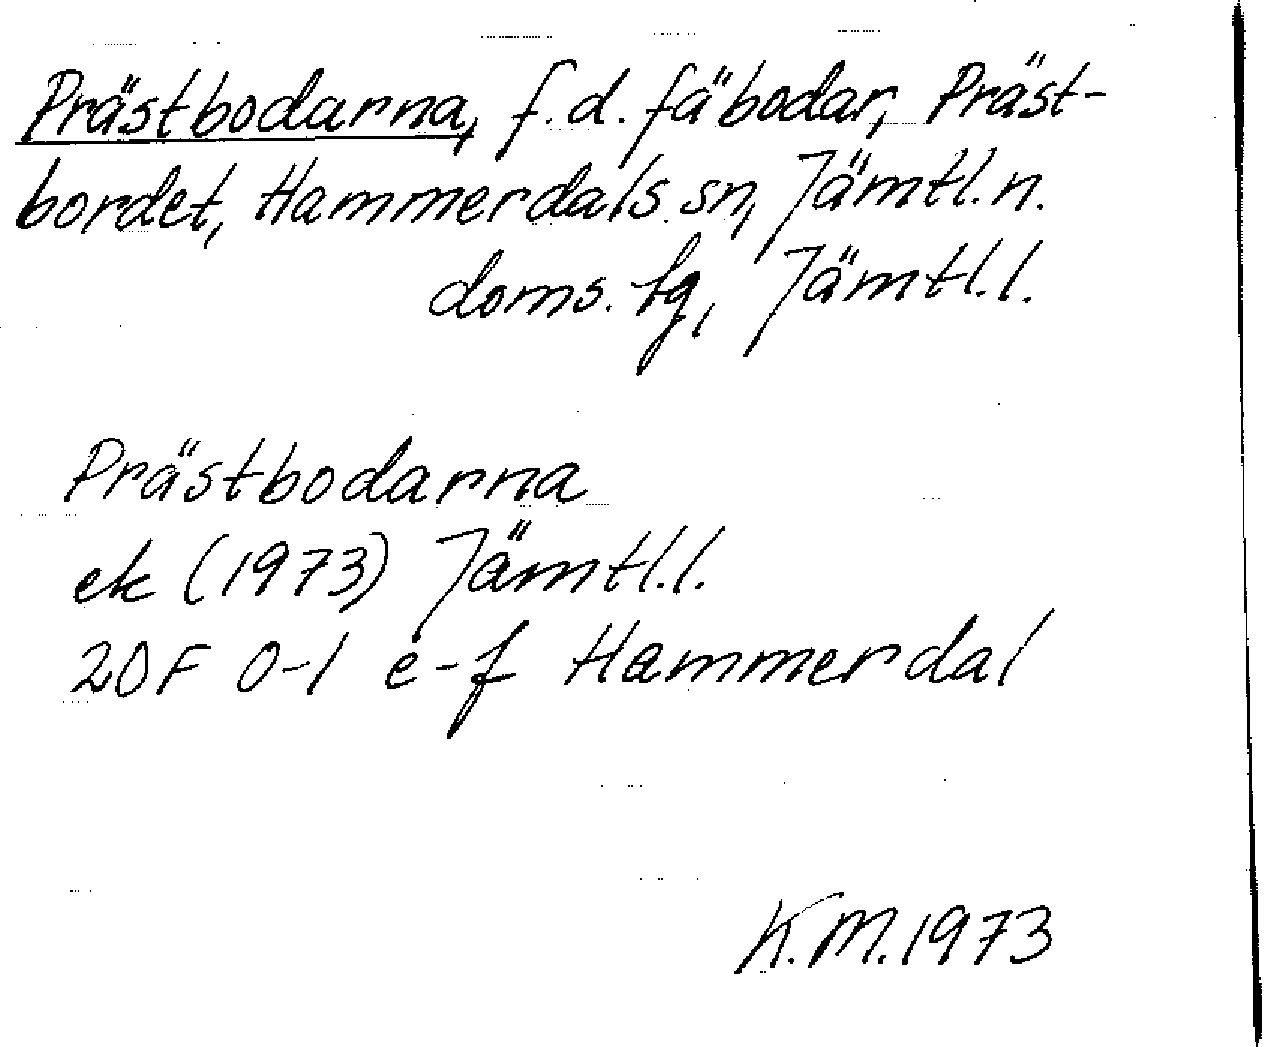 Prästbodarna, f.d. fäbodar, Präst-
bordet, Hammerdals sn, Jämtl.n.
doms. fg, Jämtl.l.
Prästbodarna
ek (1973) Jämtl.l.
20F 0-1 e-f Hammerdal
K.M.1973